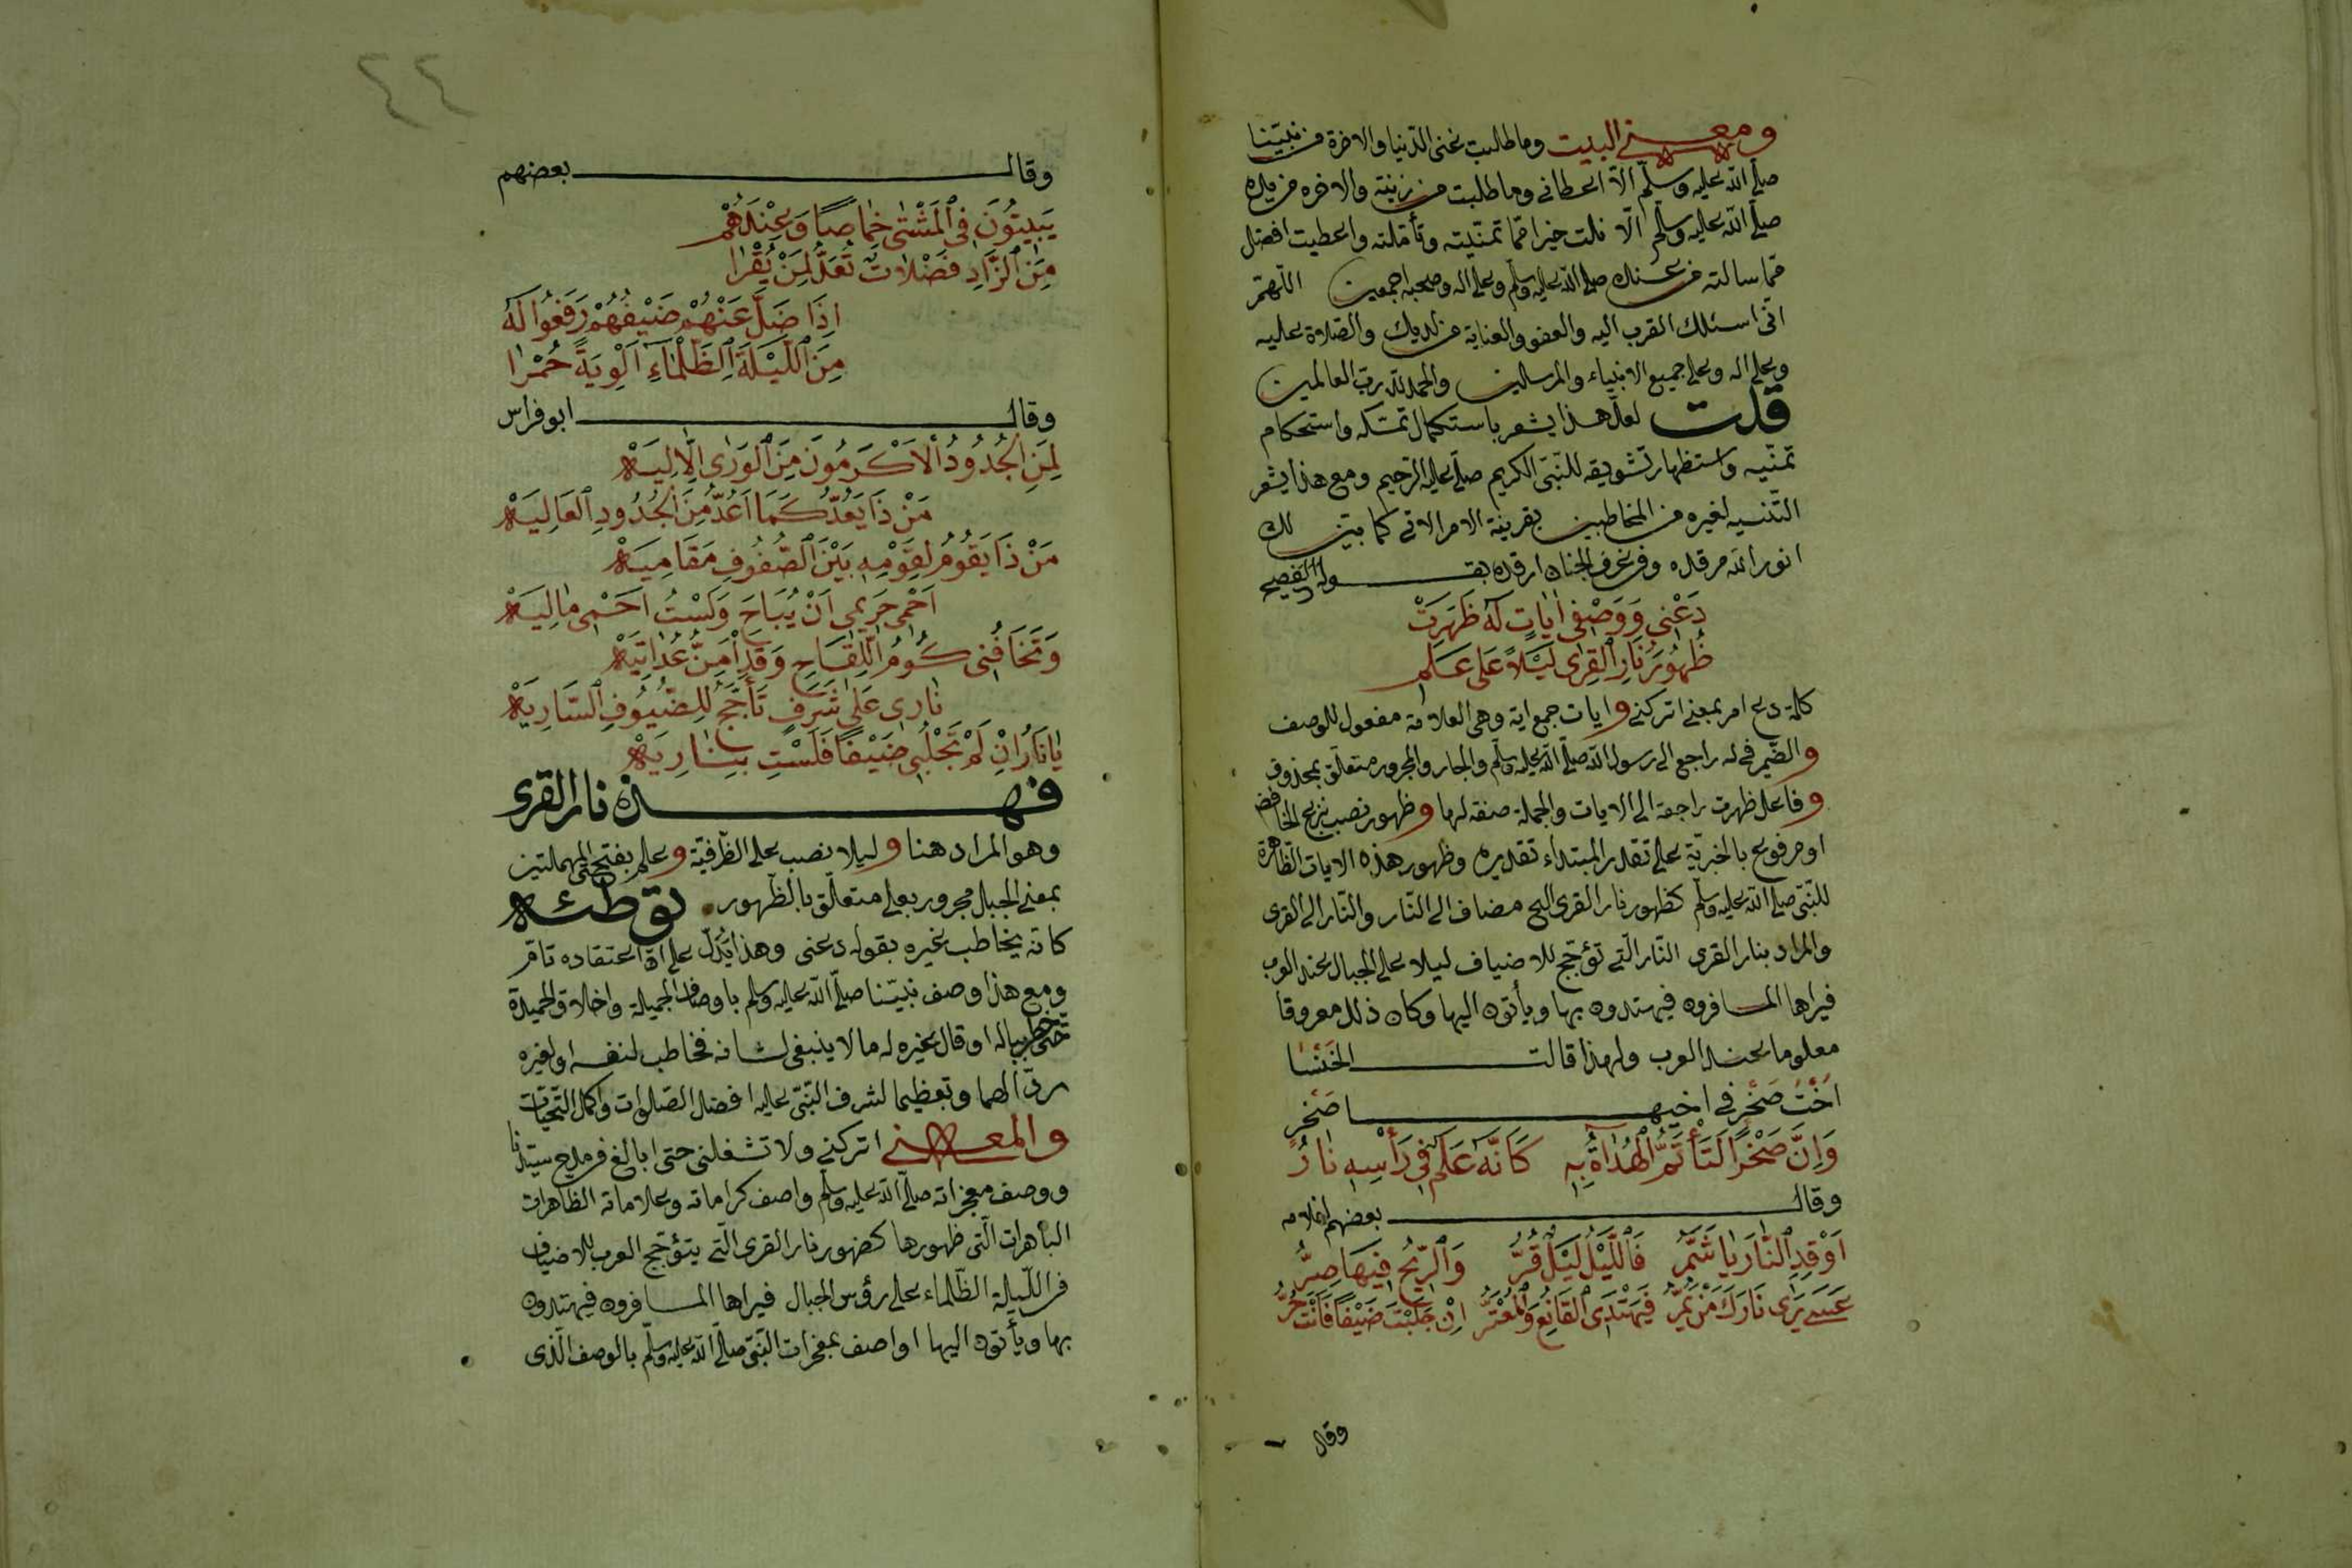 ومعنى البيت وما طلبت غنى الدنيا والاخرة من نبيّنا
صلّى الله عليه وسلّم الّا اعطانى وما طلبت من زينته والاخره من يده
صلّى الله عليه وسلّم الّا نلت خيرا ممّا تمنّيته وتأمّلته واعطيت افضل
ممّا سالته من عنده صلى الله عليه وسلم وعلى اله وصحبه اجمعين اللّهمّ
انّى اسئلك القرب اليه والعفو والعناية من لديك والصّلاة عليه
وعلى اله وعلى جميع الانبياء والمرسلين والحمد لله ربّ العالمين
قلت لعلّ هذا يشعر باستكمال تمسّكه واستحكام
تمنّيه واستظهار تشويقه للنّبىّ الكريم صلّى عليه الرّحيم ومع هذا يشعر
التّنبيه لغيره من المخاطبين بقرينة الامر الاتى كما بيّن لك
انور الله مرقده وفى غرف الجنان ارقده بقوله الفصيح
دَعْنِى وَوَصْفِى اٰيَاتٍ لَهُ ظَهَرَتْ
ظُهُورَ نَارِ الْقِرٰى لَيْلًا عَلٰى عَلَمِ
كلمة دع امر بمعنى اتركنى وايات جمع اية وهى العلامة مفعول للوصف
والضّمير فى له راجع الى رسول الله صلّى الله عليه وسلّم والجار والمجرور متعلّق بمحذوف
وفاعل ظهرت راجعة الى الايات والجملة صفة لها وظهور نصب بنزع الخافض
او مرفوع بالخبريّة على تقدير المبتداء تقديره وظهور هذه الايات الظّاهرة
للنّبىّ صلّى الله عليه وسلّم كظهور نار القرى الح مضاف الى النّار والنّار الى القرى
والمراد بنار القرى النّار الّتى تؤجّج للاضياف ليلا على الجبال عند العرب
فيراها المسافرون فيهتدون بها ويأتون اليها وكان ذلك معروفا
معلوما عند العرب ولهذا قالت الخَنْسَا
اُخْتُ صَخْرٍ فى اخيها صَخْر
وَاِنَّ صَخْرًا لَتَأْتَمُّ الْهُدَاةُ بِهِ كَاَنَّهُ عَلَمٌ فِى رَأْسِهِ نَارُ
وقال بعضهم لغلامه
اَوْقِدِ النَّارَ يَا شَمَّرُ فَاللَّيْلُ لَيْلٌ قُرُّ وَالرِّيحُ فِيهَا صِرُّ
عَسٰى يَرٰى نَارَكَ مَنْ يَمُرُّ فَيَهْتَدِى الْقَانِعُ وَالْمُعْتَرُّ اِنْ جَلَبْتَ ضَيْفًا فَاَنْتَ حُرُّ
وقال
٤٤
وقال بعضهم
يَبِيتُونَ فِى الْمَشْتٰى خِمَاصًا وَعِنْدَهُمْ
مِنَ الزَّادِ فَضْلَاتٌ تُعَدُّ لِمَنْ يُقْرٰا
اِذَا ضَلَّ عَنْهُمْ ضَيْفُهُمْ رَفَعُوا لَهُ
مِنَ اللَّيْلَةِ الظَّلْمَاءِ اَلْوِيَةً حُمْرًا
وقال ابو فراس
لِمَنِ الْجُدُودُ الْاَكْرَمُونَ مِنَ الْوَرٰى اِلَّا لِيَهْ
مَنْ ذَا يَعُدُّ كَمَا اَعُدُّ مِنَ الْجُدُودِ الْعَالِيَهْ
مَنْ ذَا يَقُومُ لِقَوْمِهِ بَيْنَ الصُّفُوفِ مَقَامِيَهْ
اَحْمِى حَرِيمِى اَنْ يُبَاحَ وَلَسْتُ اَحْمِى مَالِيَهْ
وَتَخَافُنِى كُومُ اللِّقَاحِ وَقَدْ اَمِنَّ عُدَاتِيَهْ
نَارِى عَلٰى شَرَفٍ تَأَجَّجُ لِلضُّيُوفِ السَّارِيَهْ
يَا نَارُ اِنْ لَمْ تَجْلُبِى ضَيْفًا فَلَسْتِ بِنَارِيَهْ
فهذه نار القرى
وهو المراد هنا وليلا نصب على الظّرفيّة وعلم بفتح المهملتين
بمعنى الجبال مجرور بعلى متعلّق بالظّهور توطئه
كانه يخاطب غيره بقوله دعنى وهذا يدلّ على انّ اعتقاده تامّ
ومع هذا وصف نبيّنا صلّى الله عليه وسلم باوصاف الجميلة واخلاق الحميدة
حتّى خطر بباله او قال غيره له ما لا ينبغى لشانه فخاطب لنفسه او لغيره
ردّا لهما وتعظيما لشرف النّبىّ عليه افضل الصّلوات واكمل التّحيّات
والمعنى اتركنى ولا تشغلنى حتى ابالغ فى مدح سيّدنا
ووصف معجزاته صلّى الله عليه وسلّم واصف كراماته وعلاماته الظاهرات
الباهرات الّتى ظهورها كضهور نار القرى الّتى يتؤجّج العرب للاضياف
فى اللّيلة الظّلماء على رؤس الجبال فيراها المسافرون فيهتدون
بها ويأتون اليها او اصف بمفخرات النّبىّ صلّى الله عليه وسلّم بالوصف الّذى